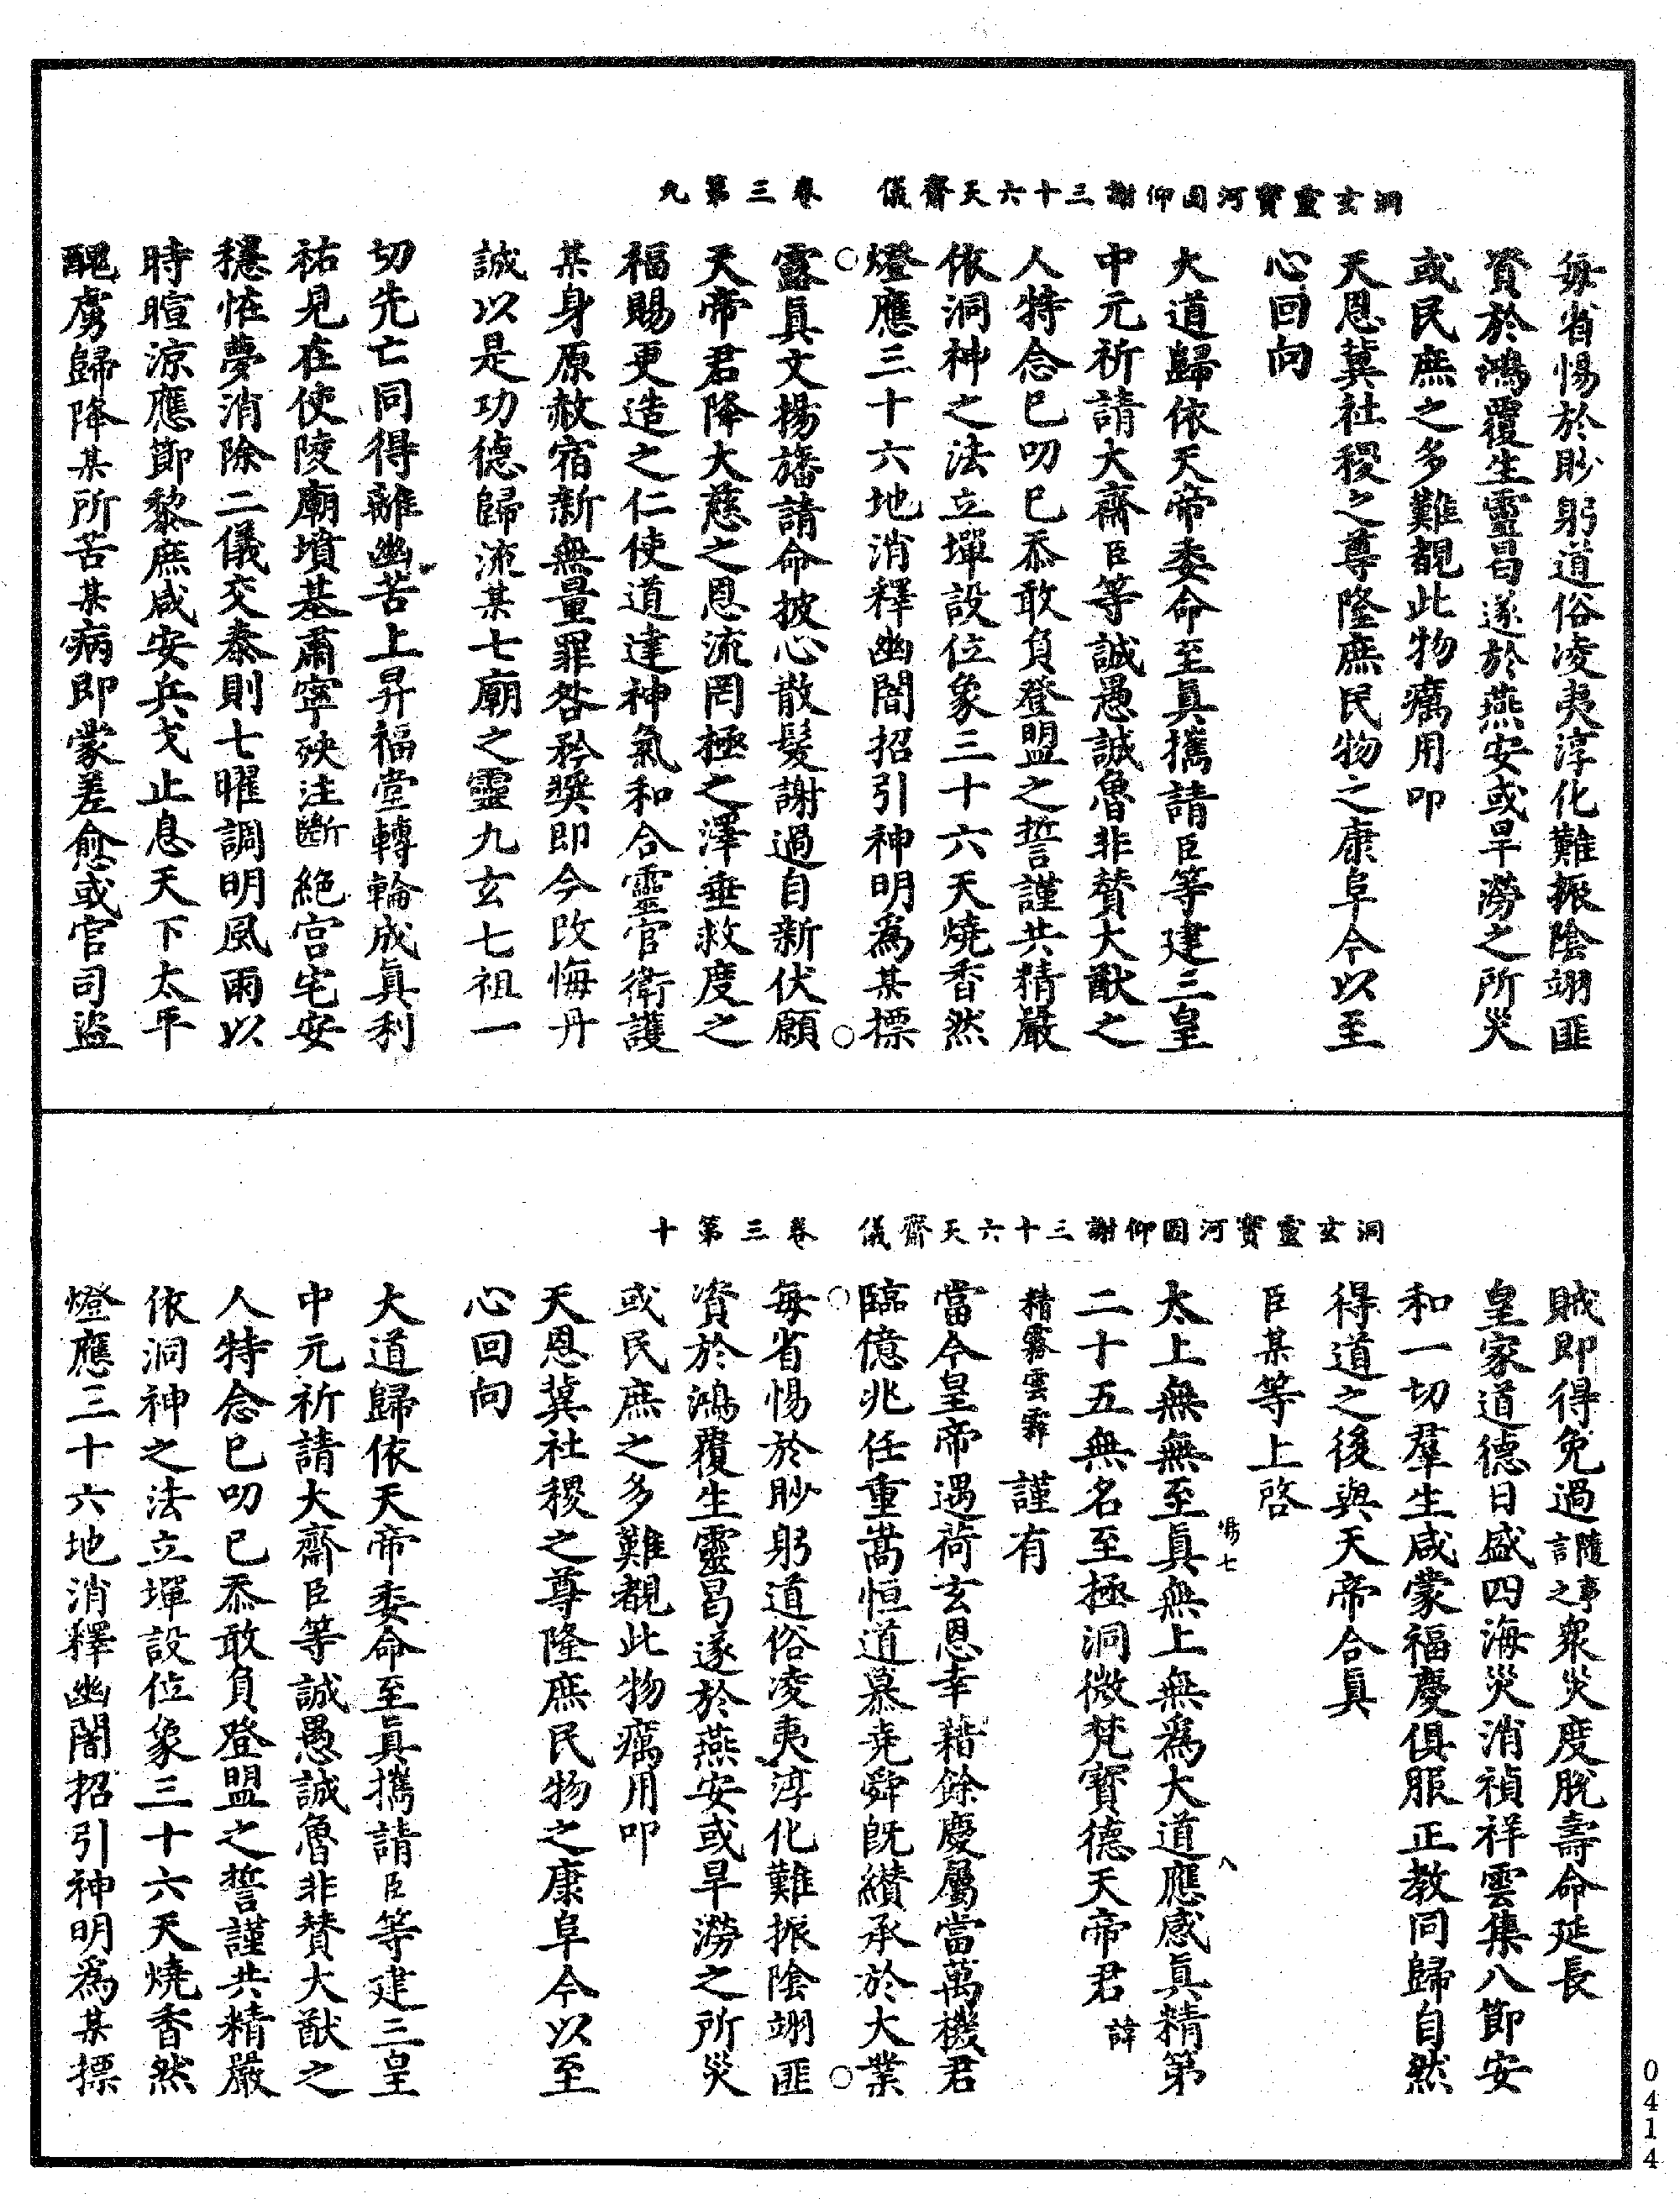 洞玄靈寶河圖仰謝三十六天齋儀　卷三第九
每省惕於眇躬道俗凌夷淳化難振陰翊匪
資於鴻覆生靈曷遂於燕安或旱澇之所災
或民庶之多難覩此物癘用叩
天恩冀社稷之尊隆庶民物之康阜今以至
心回向
大道歸依天帝委命至真攜請臣等建三皇
中元祈請大齋臣等誠愚誠魯非贊大猷之
人特念已叨已忝敢負登盟之誓謹共精嚴
依洞神之法立墠設位象三十六天燒香然
燈應三十六地消釋幽闇招引神明爲某摽
露真文揚旛請命披心散髮謝過自新伏願
天帝君降大慈之恩流罔極之澤垂救度之
福賜更造之仁使道達神氣和合靈官衛護
某身原赦宿新無量罪咎矜獎即今改悔丹
誠以是功德歸流某七廟之靈九玄七祖一
切先亡同得離幽苦上昇福堂轉輪成真利
祐見在使陵廟墳基肅寧殃注斷絕宮宅安
穩恠夢消除二儀交泰則七曜調明風雨以
時暄涼應節黎庶咸安兵戈止息天下太平
醜虜歸降某所苦某病即蒙差愈或官司盜
洞玄靈寶河圖仰謝三十六天齋儀　卷三第十
賊即得免過隨事言之衆災度脫壽命延長
皇家道德日盛四海災消禎祥雲集八節安
和一切羣生咸蒙福慶俱服正教同歸自然
得道之後與天帝合真
臣某等上啓
場七　八
太上無無至真無上無爲大道應感真精第
二十五無名至極洞微梵寶德天帝君諱
精霧雲霏　謹有
當今皇帝遇荷玄恩幸藉餘慶屬當萬機君
臨億兆任重嵩恒道慕堯舜旣纘承於大業
每省惕於眇躬道俗凌夷淳化難振陰翊匪
資於鴻覆生靈曷遂於燕安或旱澇之所災
或民庶之多難覩此物癘用叩
天恩冀社稷之尊隆庶民物之康阜今以至
心回向
大道歸依天帝委命至真攜請臣等建三皇
中元祈請大齋臣等誠愚誠魯非贊大猷之
人特念已叨已忝敢負登盟之誓謹共精嚴
依洞神之法立墠設位象三十六天燒香然
燈應三十六地消釋幽闇招引神明爲某摽
0414